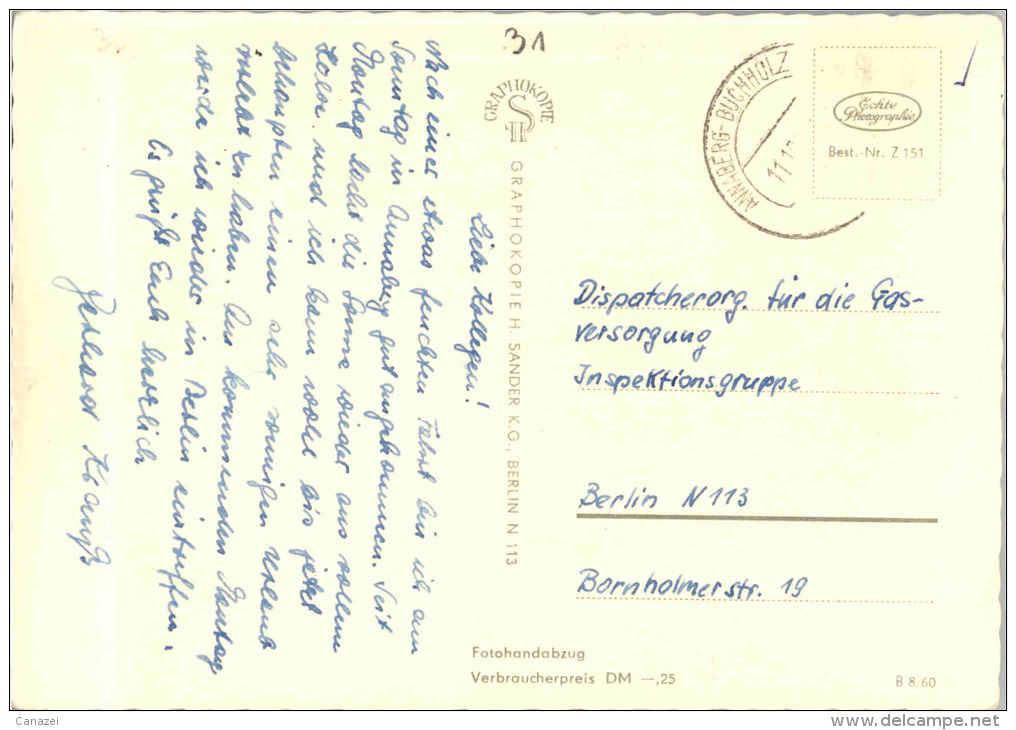 31
Liebe Kollegen!
Nach einer etwas feuchten Fahrt bin ich am
Sonntag in Annaberg gut angekommen. Seit
Montag lacht die Sonne wieder aus vollem
Halse und ich kann wohl bis jetzt
behaupten einen sehr sonnigen Urlaub
verlebt zu haben. Am kommenden Montag
werde ich wieder in Berlin eintreffen.
Es grüßt Euch herzlich
GRAPHOKOPIE
H S
GRAPHOKOPIE H. SANDER K.G., BERLIN N 113
ANNABERG-BUCHHOLZ
11.1
Echte
Photographie
Best.-Nr. Z 151
Dispatcherorg. für die Gas-
versorgung
Inspektionsgruppe
Berlin N 113
Bornholmerstr. 19
Fotohandabzug
Verbraucherpreis DM —,25
B 8/60
Canazei
www.delcampe.net